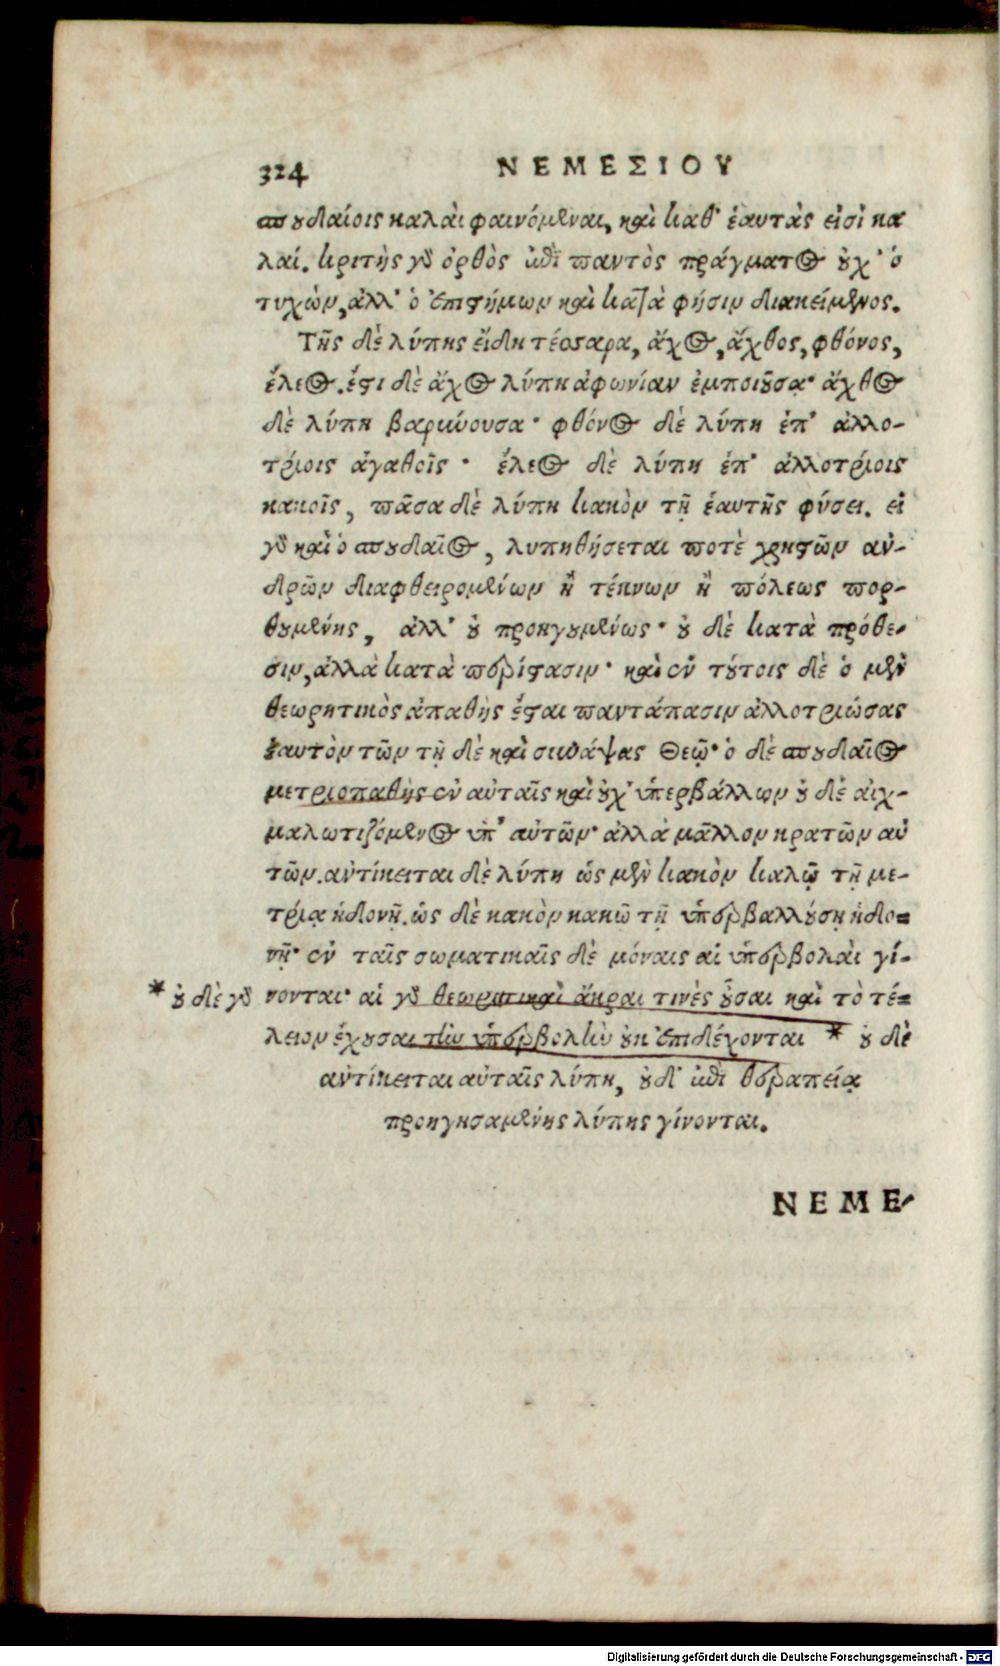 324 ΝΕΜΕΣΙΟΥ
σπουδαίοις καλαὶ φαινόμεναι, καὶ καθ' ἑαυτὰς εἰσὶ κα
λαί. κριτὴς γὸ ὀρθὸς ἐπὶ παντὸς πράγματος οὐχ' ὁ
τυχὼν, ἀλλ' ὁ ἐπιστήμων καὶ κατὰ φήσιν διακείμενος.
Τῆς δὲ λύπης εἴδη τέσσαρα, ἄχος, ἄχθος, φθόνος,
ἔλεος. ἔστι δὲ ἄχος λύπη ἀφωνίαν ἐμποιοῦσα· ἄχθος
δὲ λύπη βαρύνουσα· φθόνος δὲ λύπη ἐπ' ἀλλο-
τρίοις ἀγαθοῖς · ἔλεος δὲ λύπη ἐπ' ἀλλοτρίοις
κακοῖς, πᾶσα δὲ λύπη κακὸν τῇ ἑαυτῆς φύσει. εἰ
γὸ καὶ ὁ σπουδαῖος, λυπηθήσεται ποτὲ χρηστῶν ἀν-
δρῶν διαφθειρομένων ἢ τέκνων ἢ πόλεως πορ-
θουμένης, ἀλλ' οὐ προηγουμένως· οὐ δὲ κατὰ πρόθε-
σιν, ἀλλὰ κατὰ περίστασιν· καὶ ἐν τούτοις δὲ ὁ μὲν
θεωρητικὸς ἀπαθὴς ἔσται παντάπασιν ἀλλοτριώσας
ἑαυτὸν τῶν τῇ δὲ καὶ συνάψας Θεῷ· ὁ δὲ σπουδαῖος
μετριοπαθὴς ἐν αὐταῖς καὶ οὐχ' ὑπερβάλλων οὐ δὲ αἰχ-
μαλωτιζόμενος ὑπ' αὐτῶν· ἀλλὰ μᾶλλον κρατῶν αὐ
τῶν. ἀντίκειται δὲ λύπη ὡς μὲν κακὸν καλῷ τῇ με-
τρίᾳ ἡδονῇ. ὡς δὲ κακὸν κακῷ τῇ ὑπερβαλλούσῃ ἡδο-
νῇ· ἐν ταῖς σωματικαῖς δὲ μόναις αἱ ὑπερβολαὶ γί-
* οὐ δὲ γὸ νονται· αἱ γὸ θεωρητικαὶ ἄκραι τινὲς οὖσαι καὶ τὸ τέ-
λειον ἔχουσαι τὴν ὑπερβολὴν οὐκ ἐπιδέχονται * οὐ δὲ
ἀντίκειται αὐταῖς λύπη, οὐδ' ἐπὶ θεραπείᾳ
προηγησαμένης λύπης γίνονται.
ΝΕΜΕ-
Digitalisierung gefördert durch die Deutsche Forschungsgemeinschaft - DFG